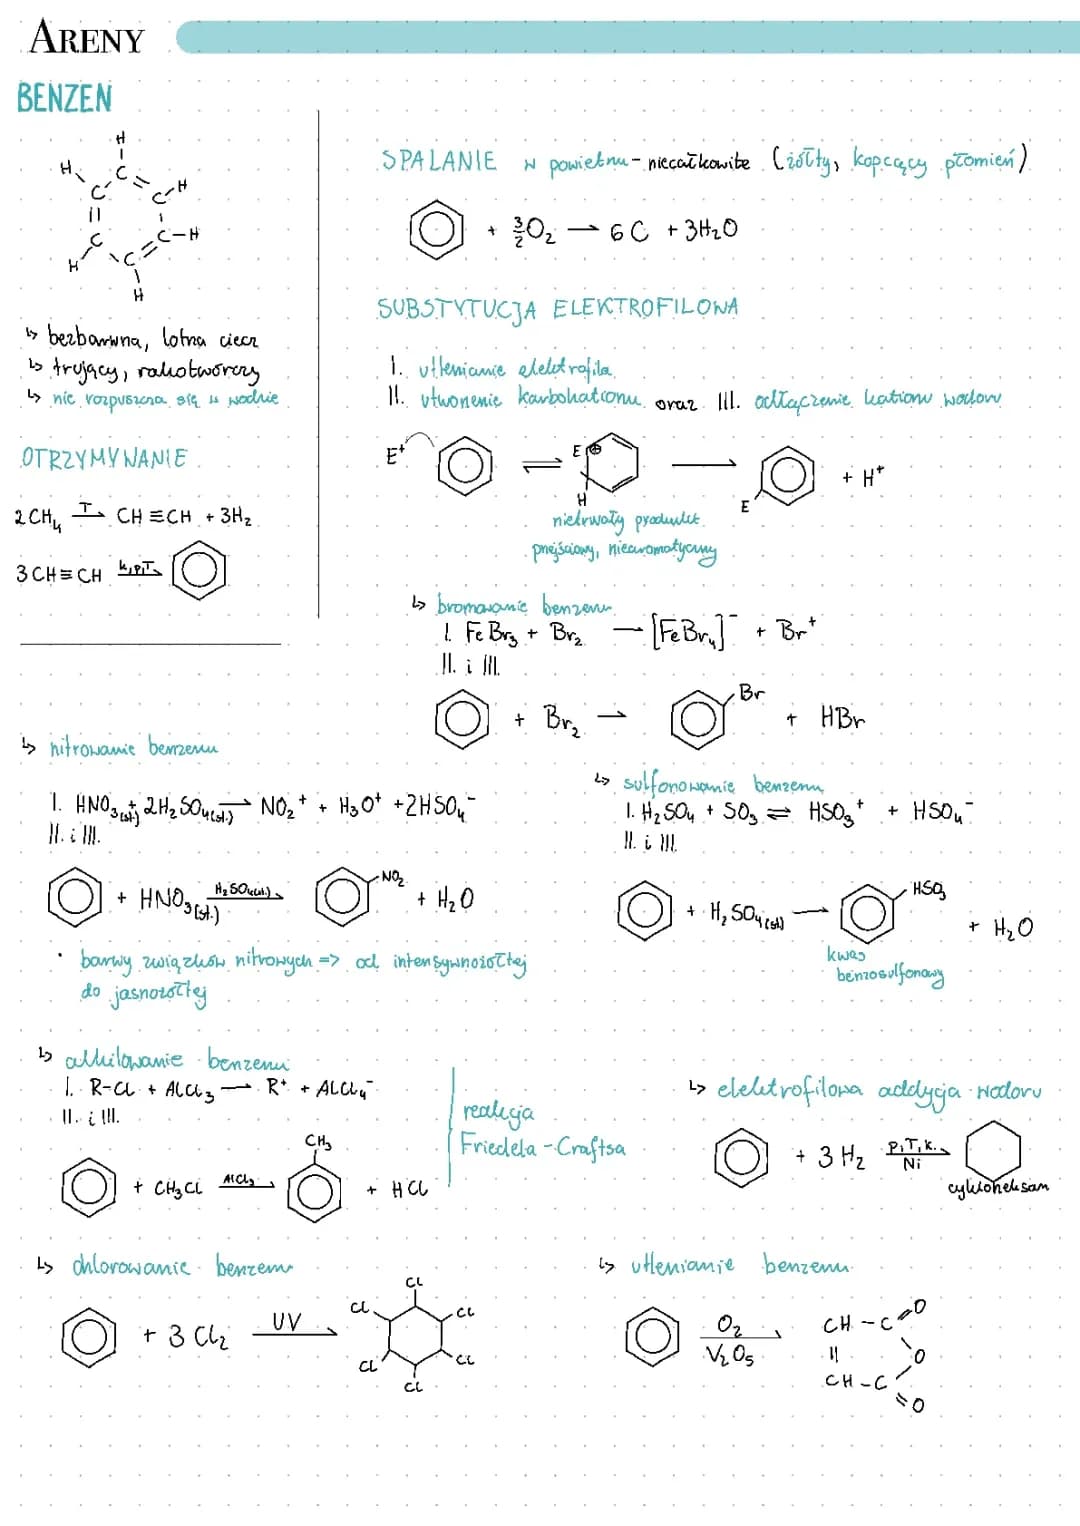 ARENY
BENZEN
H
H C H
C C
C C-H
H C
H
↳ bezbarwna, lotna ciecz
↳ trujący, rakotwórczy
↳ nie rozpuszcza się w wodzie
OTRZYMYWANIE
2CH₄ —T→ CH≡CH + 3H₂
3CH≡CH —k,p,T→
SPALANIE w powietrzu - niecałkowite (żółty, kopcący płomień)
+ 3/2 O₂ → 6C + 3H₂O
SUBSTYTUCJA ELEKTROFILOWA
I. utlenianie elektrofila
II. utworzenie karbokationu oraz III. odłączenie kationu wodoru
E⁺ ⇌ E ⊕ H → E + H⁺
nietrwały produkt
przejściowy, niearomatyczny
↳ bromowanie benzenu
I. FeBr₃ + Br₂ → [FeBr₄]⁻ + Br⁺
II. i III.
+ Br₂ → Br + HBr
↳ nitrowanie benzenu
I. HNO₃(st.) + 2H₂SO₄(st.) → NO₂⁺ + H₃O⁺ + 2HSO₄⁻
II. i III.
+ HNO₃(st.) —H₂SO₄(st.)→ NO₂ + H₂O
• barwy związków nitrowych => od intensywnożółtej
do jasnożółtej
↳ sulfonowanie benzenu
I. H₂SO₄ + SO₃ ⇌ HSO₃⁺ + HSO₄⁻
II. i III.
+ H₂SO₄(st) → HSO₃ + H₂O
kwas
benzosulfonowy
↳ alkilowanie benzenu
I. R-Cl + AlCl₃ → R⁺ + AlCl₄⁻
II. i III.
+ CH₃Cl —AlCl₃→ CH₃ + HCl
reakcja
Friedela-Craftsa
↳ elektrofilowa addycja wodoru
+ 3H₂ —p,T,k. Ni→
cykloheksan
↳ chlorowanie benzenu
+ 3Cl₂ —UV→ Cl Cl Cl Cl Cl Cl
↳ utlenianie benzenu
O₂
V₂O₅
CH-C=O
|| O
CH-C
=O